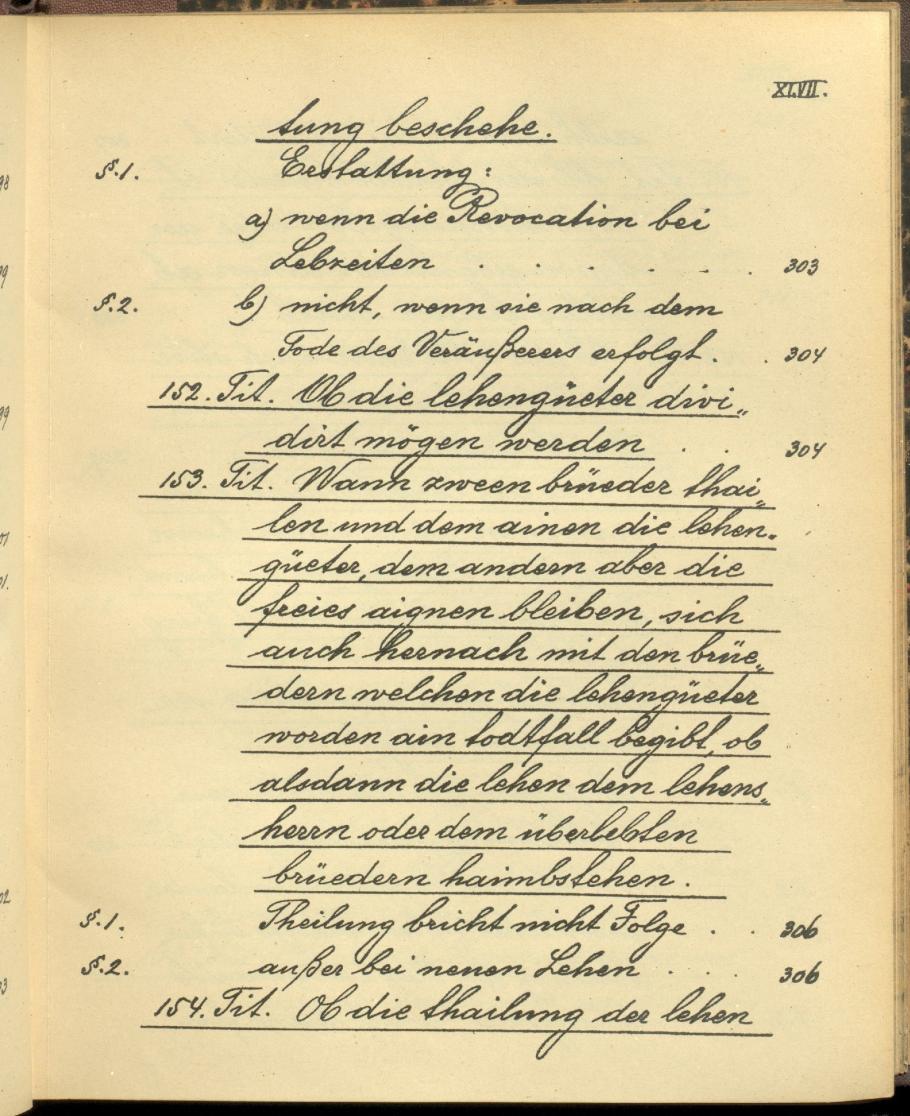 XLVII.
tung beschehe.
§.1. Erstattung:
a) wenn die Revocation bei
Lebzeiten . . . . . . . 303
§.2. b) nicht, wenn sie nach dem
Tode des Veräußerers erfolgt . . 304
152. Tit. Ob die lehengüeter divi„
dirt mögen werden . . . 304
153. Tit. Wann zween brüeder thai„
len und dem ainen die lehen„
güeter, dem andern aber die
freies aignen bleiben, sich
auch hernach mit den brüe„
dern welchen die lehengüeter
worden ain todtfall begibt, ob
alsdann die lehen dem lehens„
herrn oder dem überlebten
brüedern haimbstehen.
§.1. Theilung bricht nicht Folge . . 306
§.2. außer bei neuen Lehen . . . . 306
154. Tit. Ob die thailung der lehen